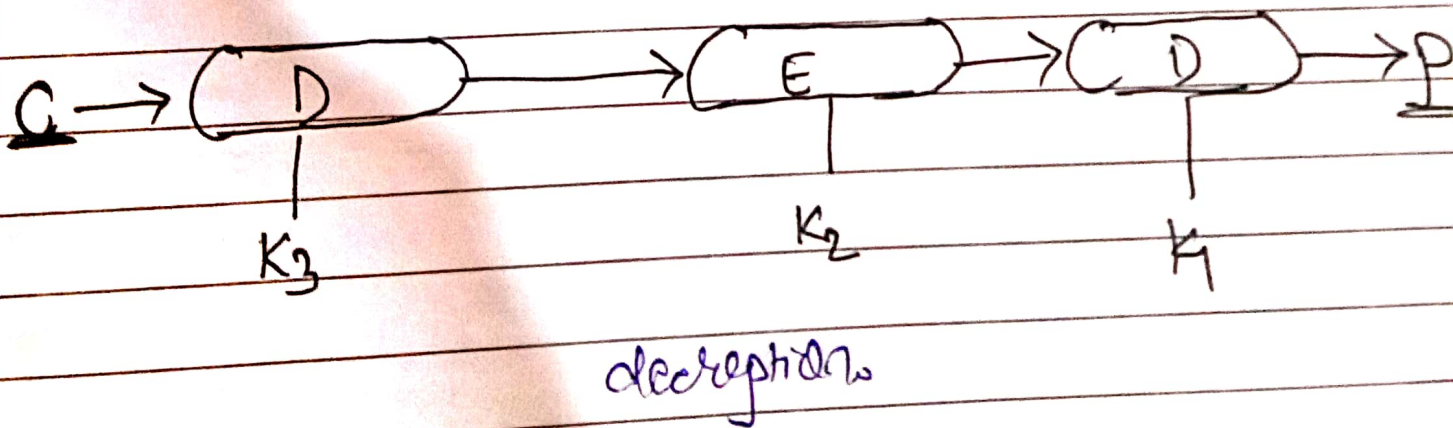 C → D → E → D → P
K3 K2 K1
decreption